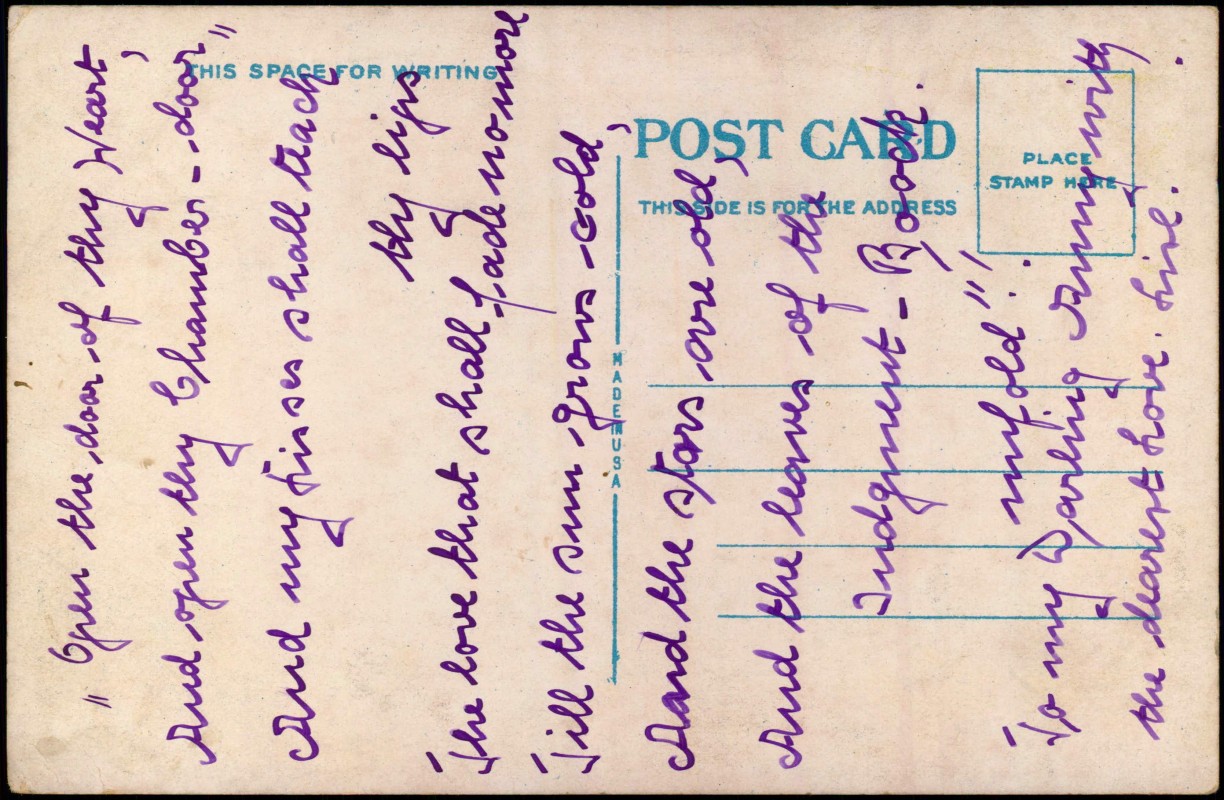 THIS SPACE FOR WRITING
POST CARD
THIS SIDE IS FOR THE ADDRESS
PLACE
STAMP HERE
MADE IN USA
" Open the door of thy Heart,
And open thy Chamber-door,"
And my Kisses shall teach
thy lips
The love that shall fade no more
Till the sun grows cold,
Aand the stars are old,
And the leaves of the
Judgment-Book.
unfold"!
To my Darling with
the dearest love.